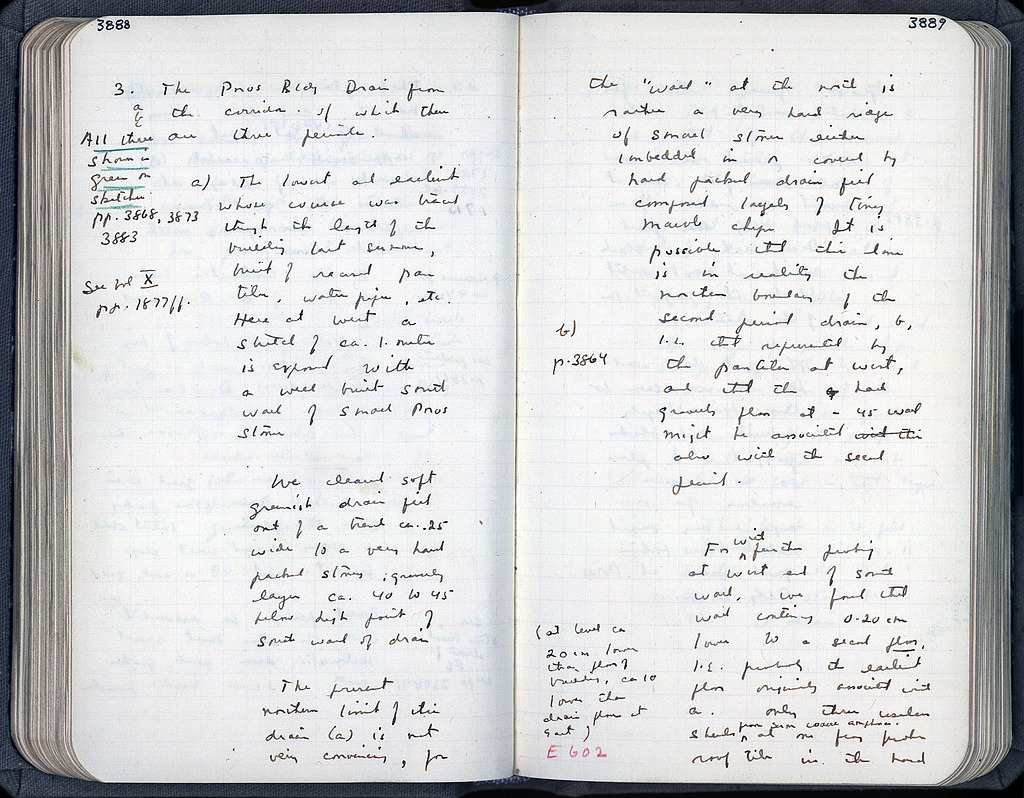 3888
3. The Poros Bldg Drain from
a
& the corridor of which there
are three periods.
All three
shown in
green on
sketches
pp. 3868, 3873
3883
See vol X
pp. 1877ff.
a) The lowest and earliest
whose course was traced
through the length of the
building last summer,
built of round pan
tiles, water pipes, etc.
Here at west a
stretch of ca. 1. meter
is exposed with
a well built south
wall of small Poros
stones
We cleared soft
greenish drain fill
out of a trench ca. .25
wide to a very hard
packed stones, gravelly
layer ca. 40 to 45
below high point of
south wall of drain
The present
northern limit of this
drain (a) is not
very convincing, for
3889
the "wall" at the north is
rather a very hard ridge
of small stones either
imbedded in or covered by
hard packed drain fill
composed largely of tiny
marble chips. It is
possible that this line
is in reality the
northern boundary of the
second period drain, b,
i.e. that represented by
the pantiles at west,
and that the hard
gravelly floor at - 45 wall
might be associated with this
also with the second
period.
b)
p. 3864
For with further probing
at west end of south
wall, we found that
wall continuing 0.20 cm
lower to a second floor,
i.e. probably the earliest
floor originally associated with
a. only three useless
sherds from semi coarse amphora. at one few
roof tile in the hard
(at level ca
20 cm lower
than floor of
building, ca 10
lower than
drain floor at
east)
E 602